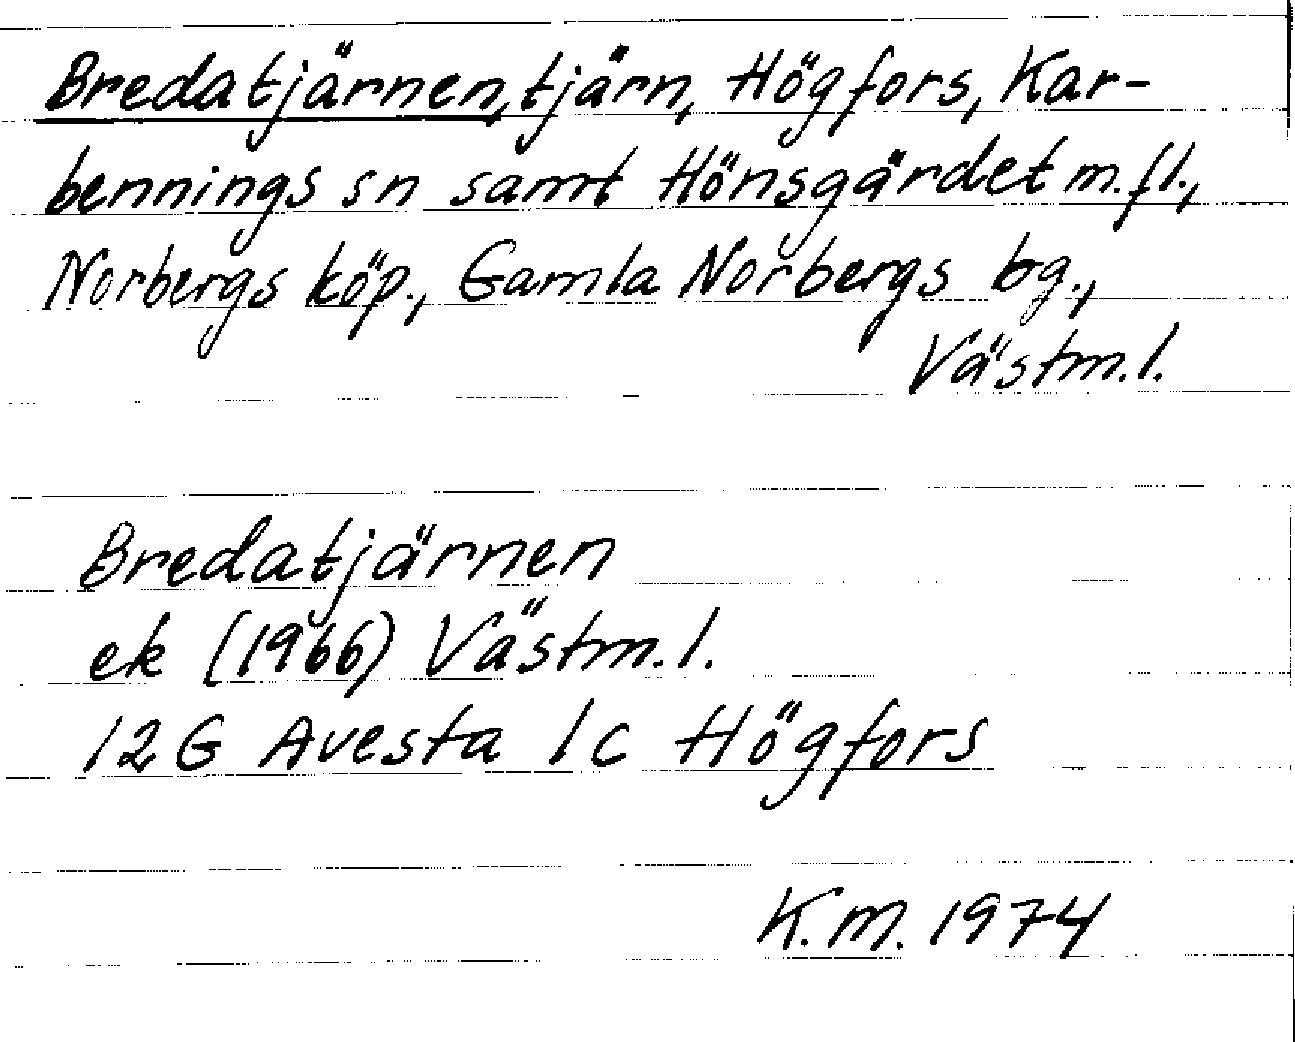 Bredatjärnen, tjärn, Högfors, Kar-
bennings sn samt Hönsgärdet m.fl.,
Norbergs köp., Gamla Norbergs bg.,
Västm.l.
Bredatjärnen
ek (1966) Västm.l.
12G Avesta 1c Högfors
K.M. 1974